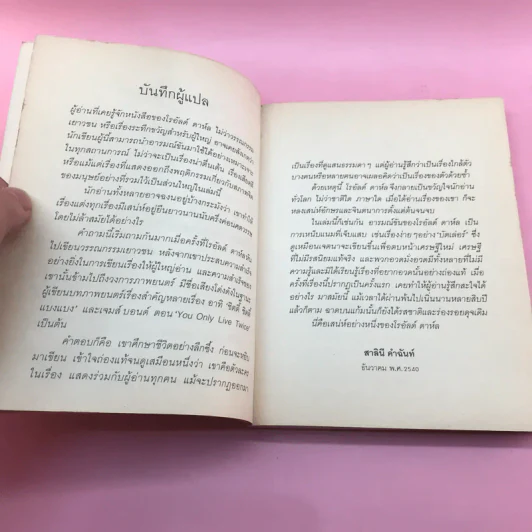 บันทึกผู้แปล
ผู้อ่านที่เคยรู้จักหนังสือของโรอัลด์ ดาห์ล ไม่ว่าวรรณกรรม
เยาวชน หรือเรื่องระทึกขวัญสำหรับผู้ใหญ่ อาจเคยสังเกตว่า
นักเขียนผู้นี้สามารถนำอารมณ์ขันมาใช้ได้อย่างเหมาะเจาะ
ในทุกสถานการณ์ ไม่ว่าจะเป็นเรื่องน่าตื่นเต้น
หรือแม้แต่เรื่องที่แสดงออกถึงพฤติกรรมเกี่ยวกับ
ของมนุษย์อย่างที่รวมไว้เป็นส่วนใหญ่ในเล่มนี้
นักอ่านทั้งหลายอาจฉงนอยู่บ้างกระมังว่า
เรื่องแต่งทุกเรื่องมีเสน่ห์อยู่ยืนยาวนานนับครึ่งค่อนศตวรรษ
โดยไม่ล้าสมัยได้อย่างไร
คำถามนี้เริ่มถามกันมากเมื่อครั้งที่โรอัลด์ ดาห์ลหัน
ไปเขียนวรรณกรรมเยาวชน หลังจากเขาประสบความสำเร็จ
อย่างยิ่งในการเขียนเรื่องให้ผู้ใหญ่อ่าน และความสำเร็จของ
เขานั้นข้ามไปถึงวงการภาพยนตร์ มีชื่อเสียงโด่งดังในฐานะ
ผู้เขียนบทภาพยนตร์เรื่องสำคัญหลายเรื่อง อาทิ ชิตตี้ ชิตตี้
แบงแบง' และเจมส์ บอนด์ ตอน 'You Only Live Twice'
เป็นต้น
คำตอบก็คือ เขาศึกษาชีวิตอย่างลึกซึ้ง ก่อนจะหยิบ
มาเขียน เข้าใจถ่องแท้จนดูเสมือนหนึ่งว่า เขาคือตัวละคร
ในเรื่อง แสดงร่วมกับผู้อ่านทุกคน แม้จะปรากฏออกมา
เป็นเรื่องที่ดูแสนธรรมดาๆ แต่ผู้อ่านรู้สึกว่าเป็นเรื่องใกล้ตัว
บางคนหรือหลายคนอาจเผลอคิดว่าเป็นเรื่องของตัวด้วยซ้ำ
ด้วยเหตุนี้ โรอัลด์ ดาห์ล จึงกลายเป็นขวัญใจนักอ่าน
ทั่วโลก ไม่ว่าชาติใด ภาษาใด เมื่อได้อ่านเรื่องของเขา ก็จะ
หลงเสน่ห์อักษรและจินตนาการตั้งแต่ต้นจนจบ
ในเล่มนี้ก็เช่นกัน อารมณ์ขันของโรอัลด์ ดาห์ล เป็น
การเหน็บแนมที่เจ็บแสบ เช่นเรื่องง่ายๆอย่าง 'บัตเล่อร์' ซึ่ง
ดูเหมือนเจตนาจะเขียนขึ้นเพื่อตบหน้าเศรษฐีใหม่ เศรษฐี
ที่ไม่มีรสนิยมแท้จริง และพวกอวดมั่งอวดมีทั้งหลายที่ไม่มี
ความรู้และมิได้เรียนรู้เรื่องที่อยากอวดนั้นอย่างถ่องแท้ เมื่อ
ครั้งที่เรื่องนี้ปรากฏเป็นครั้งแรก เคยทำให้ผู้อ่านรู้สึกสะใจได้
อย่างไร มาสมัยนี้ แม้เวลาได้ผ่านพ้นไปเนิ่นนานหลายสิบปี
แล้วก็ตาม ฉาดบนแก้มนั้นก็ยังได้รสชาติและร่องรอยดุจเดิม
นี่คือเสน่ห์อย่างหนึ่งของโรอัลด์ ดาห์ล
สาลินี คำฉันท์
ธันวาคม พ.ศ.2540